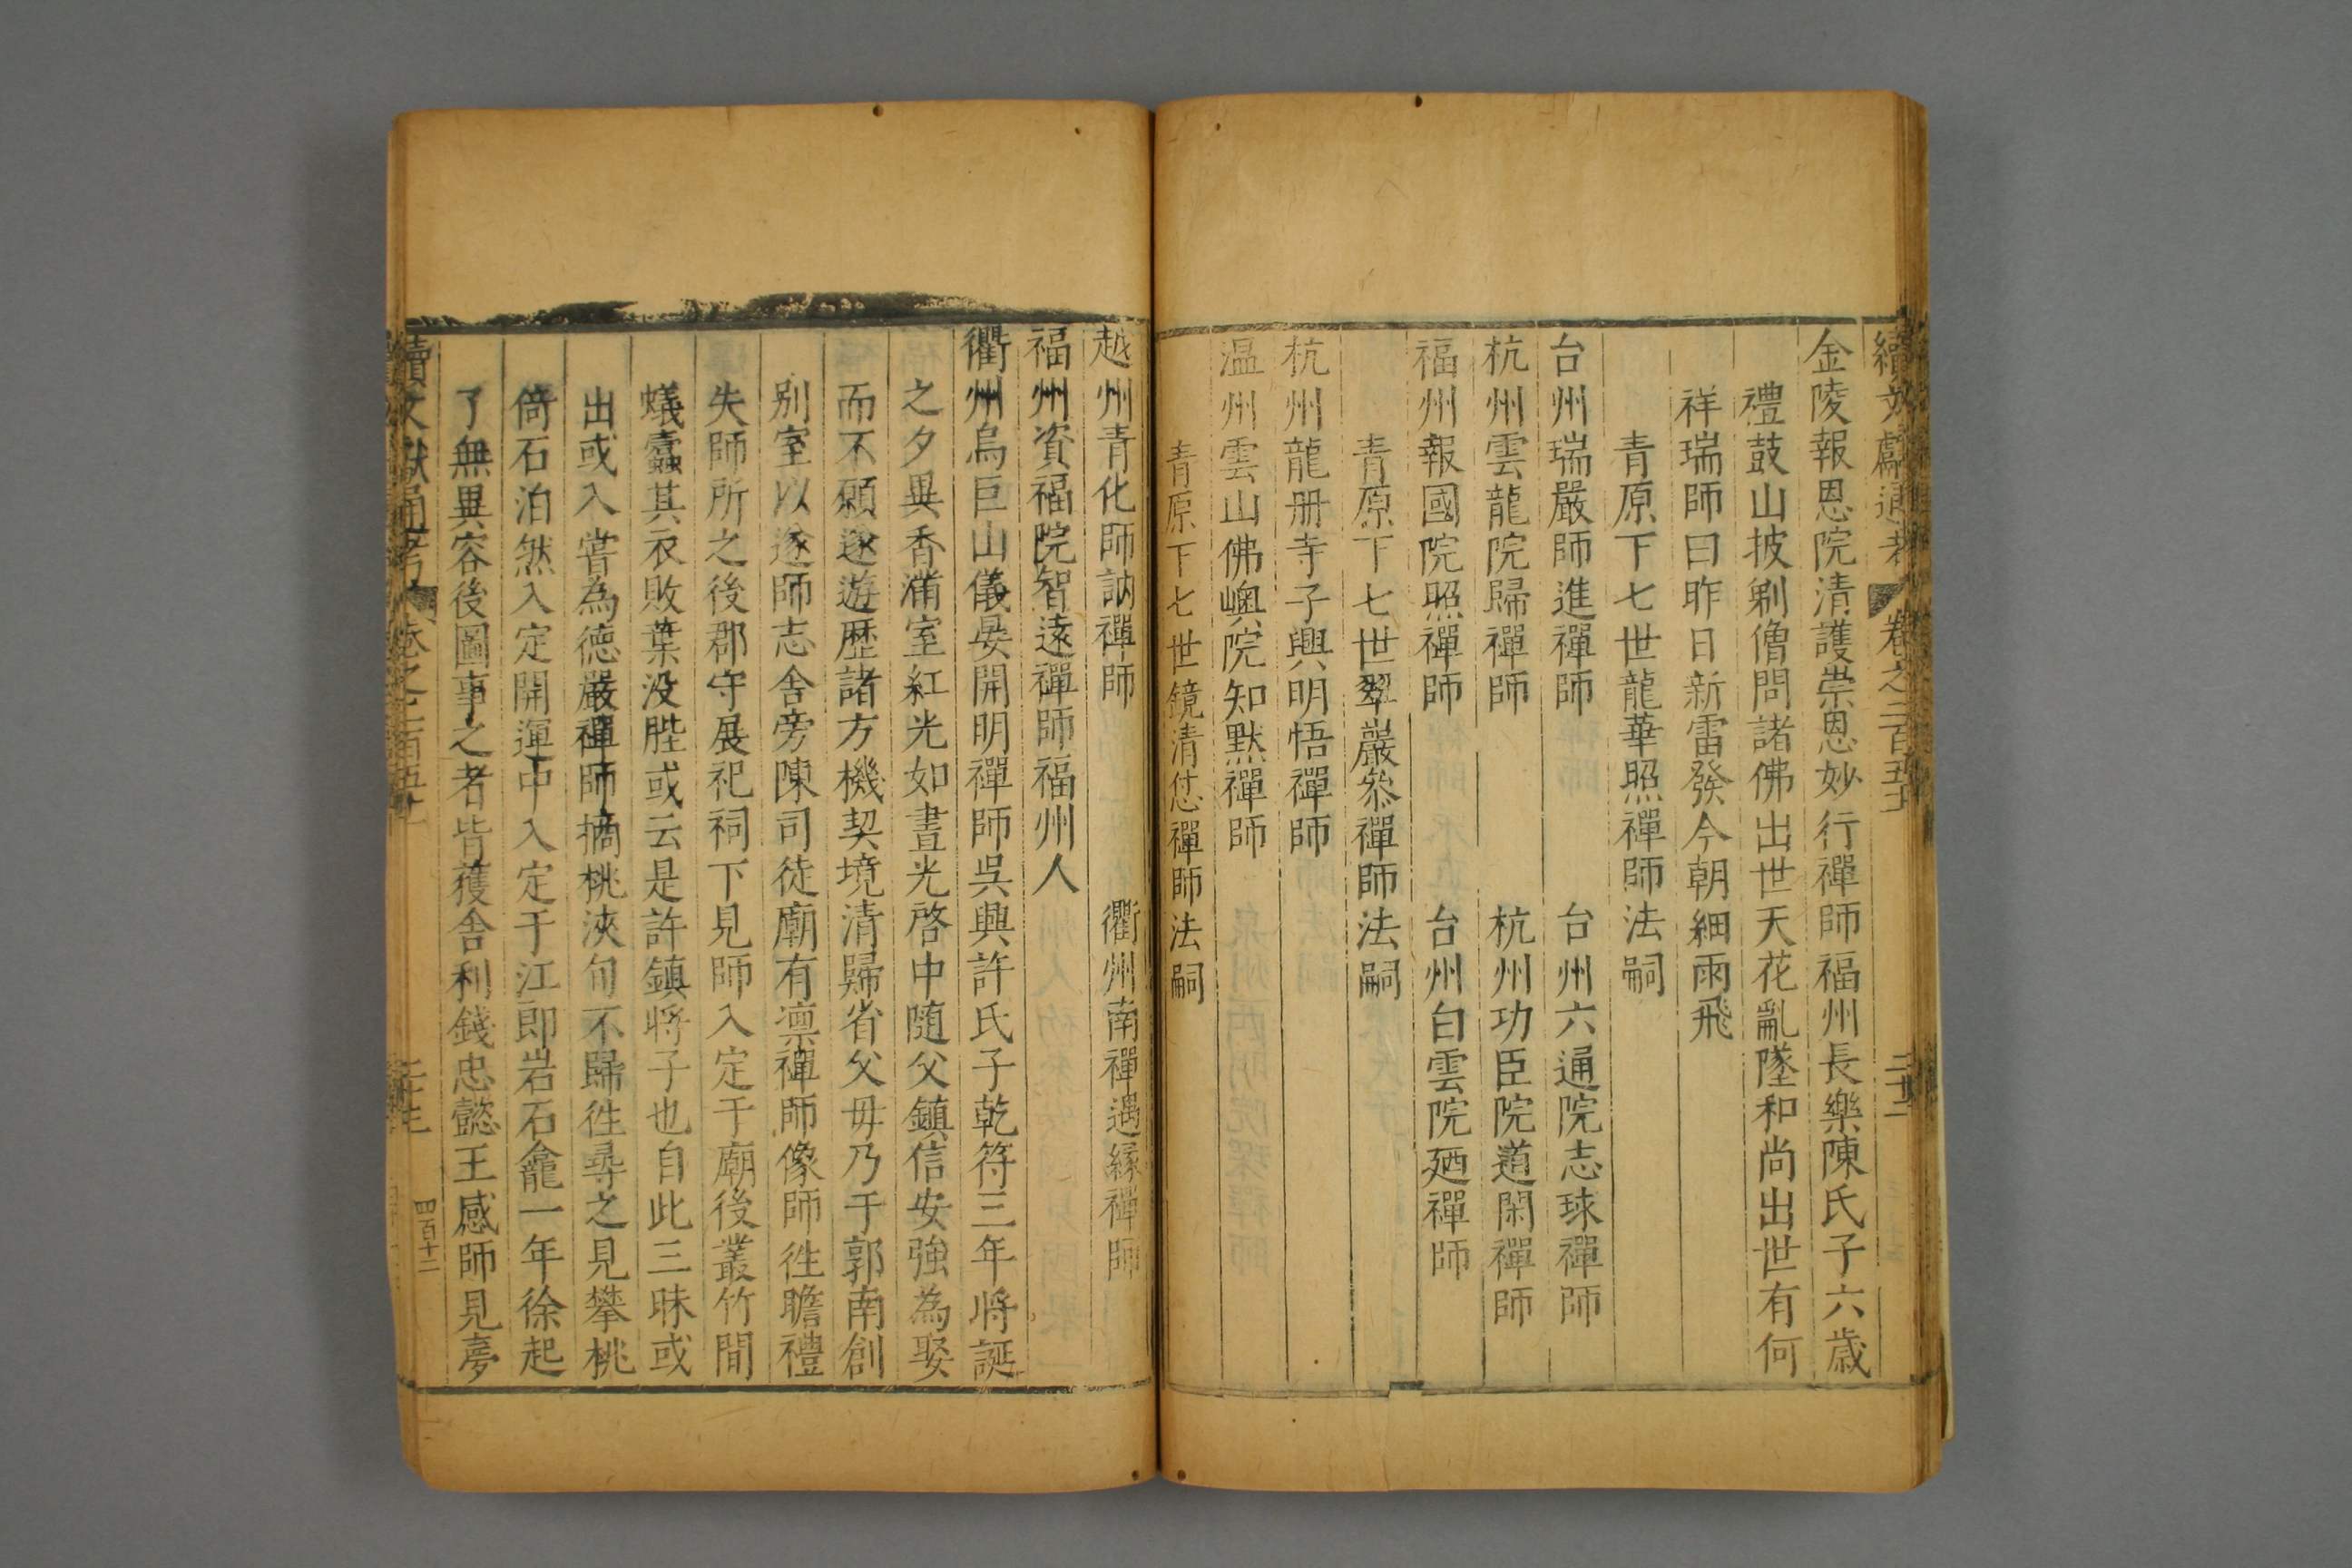 續文獻通考 卷之二百五十 二十二
金陵報恩院清護崇恩妙行禪師福州長樂陳氏子六歲
禮鼓山披剃僧問諸佛出世天花亂墜和尚出世有何
祥瑞師曰昨日新雷發今朝細雨飛
青原下七世龍華照禪師法嗣
台州瑞巖師進禪師 台州六通院志球禪師
杭州雲龍院歸禪師 杭州功臣院道閑禪師
福州報國院照禪師 台州白雲院廼禪師
青原下七世翠巖叅禪師法嗣
杭州龍册寺子興明悟禪師
温州雲山佛㠗院知默禪師
青原下七世鏡清怤禪師法嗣
越州青化師訥禪師 衢州南禪遇緣禪師
福州資福院智遠禪師福州人
衢州烏巨山儀晏開明禪師吳興許氏子乾符三年將誕
之夕異香滿室紅光如晝光啓中随父鎮信安強為娶
而不願遂遊歷諸方機契境清歸省父母乃于郭南創
別室以遂師志舍旁陳司徒廟有凛禪師像師徃瞻禮
失師所之後郡守展祀祠下見師入定于廟後叢竹間
蟻蠹其衣敗葉没䏶或云是許鎮將子也自此三昧或
出或入嘗為德嚴禪師摘桃浹旬不歸徃尋之見攀桃
倚石泊然入定開運中入定于江郎岩石龕一年徐起
了無異容後圖事之者皆獲舍利錢忠懿王感師見夢
續文獻通考 卷之二百五十 四百十二